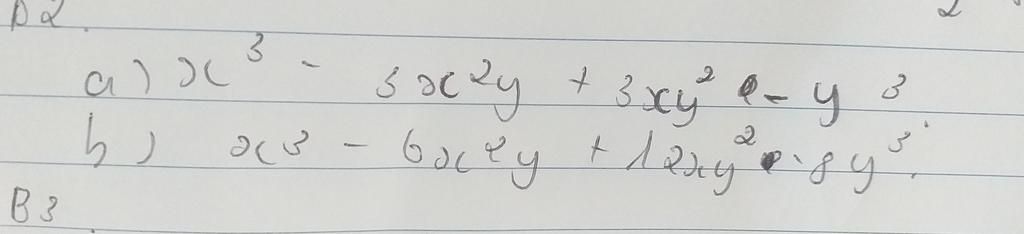 2
a) x³ - 3x²y + 3xy² - y³.
b) x³ - 6x²y + 12xy² - 8y³.
B3